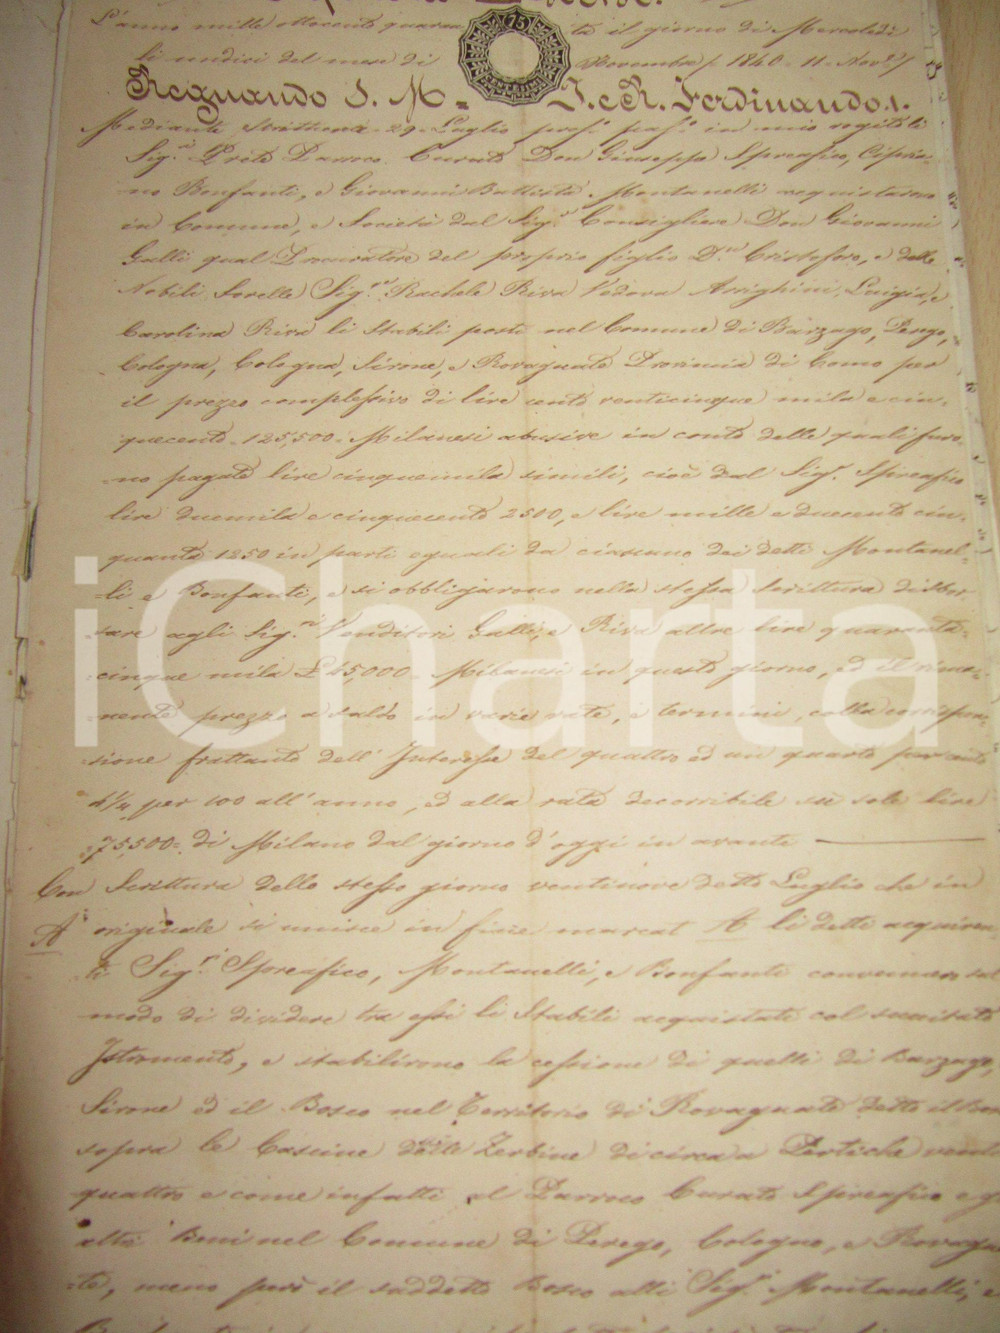 L'anno mille ottocento quaran ta il giorno di Mercoledì
li undici del mese di Novembre 1840. 11. Nov.e
75
Regnando S. M. I. e R. Ferdinando 1.
Mediante Scrittura 29 Luglio pros.o pas.o in mio rogito li
Sig.ri Prete Parroco Curato Don Giuseppe Spreafico, Cipria-
no Bonfanti, e Giovanni Battista Montanelli acquistarono
in Comune, e Società dal Sig.r Consigliere Don Giovanni
Galli qual Procuratore del proprio figlio D.n Cristoforo, e delle
Nobili Sorelle Sig.re Rachele Riva Vedova Arrighini, Luigia, e
Carolina Riva li Stabili posti nel Comune di Barzago, Perego,
Cologna, Cologna, Sirone, e Rovagnate Provincia di Como per
il prezzo complessivo di lire cento venticinque mila e cin-
quecento 125,500 Milanesi abusive in conto delle quali furo-
no pagate lire cinquemila simili, cioè dal Sig.r Spreafico
lire duemila e cinquecento 2500, e lire mille e duecento cin-
quanta 1250 in parti eguali da ciascuno dei detti Montanel-
li e Bonfanti, e si obbligarono nella stessa Scrittura disbor-
sare agli Sig.ri Venditori Galli, e Riva altre lire quaranta-
cinque mila £ 45,000 Milanesi in questo giorno, ed il rima-
nente prezzo a saldo in varie rate, e termini, colla corrispon-
sione frattanto dell' Interesse del quattro ed un quarto per cento
4 1/4 per 100 all'anno, ed alla rata decorribile su sole lire
75,500 di Milano dal giorno d'oggi in avanti
Con Scrittura dello stesso giorno ventinove detto Luglio che in
A originale si unisce in fine marcat A li detti acquiren-
ti Sig.ri Spreafico, Montanelli, e Bonfanti convennero sul
modo di dividere tra essi li Stabili acquistati col succitato
Istromento, e stabilirono la cessione di quelli di Barzago,
Sirone ed il Bosco nel Territorio di Rovagnate detto il
sopra le Cascine delle Zerbine di circa a Pertiche venti
quattro e come infatti al Parroco Curato Spreafico e g
altri Beni nel Comune di Perego, Cologna, e Rovagna
te, meno però il suddetto Bosco alli Sig.ri Montanelli, e
iCharta